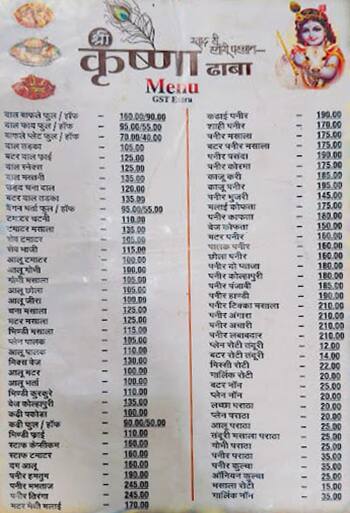 श्री
कृष्णा ढाबा
Menu
GST Extra
दाल बाफले फुल / हाॅफ - 160.00/90.00
दाल फ्राय फुल / हाॅफ - 95.00/55.00
बाफले प्लेट फुल / हाॅफ - 70.00/40.00
दाल तड़का - 105.00
बटर दाल फ्राई - 125.00
दाल - 125.00
दाल मखनी - 135.00
चना दाल - 120.00
बटर दाल तड़का - 135.00
बैगन भर्ता फुल / हाॅफ - 95.00/55.00
टमाटर चटनी - 110.00
टमाटर मसाला - 135.00
सेव टमाटर - 105.00
सेव भाजी - 115.00
आलू टमाटर - 100.00
आलू गोभी - 100.00
गोभी मसाला - 105.00
आलू छोला - 105.00
आलू जीरा - 100.00
चना मसाला - 125.00
मटर मसाला - 125.00
भिण्डी मसाला - 115.00
प्लेन पालक - 105.00
आलू पालक - 110.00
मिक्स वेज - 130.00
आलू मटर - 100.00
आलू भर्ता - 100.00
भिण्डी कुरकुरे - 110.00
वेज कोल्हापुरी - 135.00
कढ़ी पकोड़ा - 100.00
कढ़ी फुल / हाॅफ - 90.00/50.00
भिण्डी फ्राई - 110.00
स्टाफ केप्सीकम - 160.00
स्टाफ टमाटर - 160.00
दम आलू - 160.00
पनीर हमतुम - 190.00
पनीर ममताज - 245.00
पनीर तिरंगा - 245.00
मटर मेथी मलाई - 170.00
कढाई पनीर - 190.00
शाही पनीर - 170.00
पनीर मसाला - 175.00
बटर पनीर मसाला - 175.00
पनीर पसंदा - 190.00
पनीर कोरमा - 175.00
काजू करी - 185.00
काजू पनीर - 195.00
पनीर भुजरी - 145.00
मलाई कोफता - 175.00
पनीर काफता - 180.00
वेज कोफता - 150.00
मटर पनीर - 160.00
पालक पनीर - 160.00
छोला पनीर - 160.00
पनीर दो प्याजा - 180.00
पनीर कोल्हापुरी - 180.00
पनीर पंजाबी - 185.00
पनीर हाण्डी - 190.00
पनीर टिक्का मसाला - 210.00
पनीर अंगारा - 210.00
पनीर अचारी - 210.00
पनीर लबाबदार - 210.00
प्लेन रोटी तंदूरी - 12.00
बटर रोटी तंदूरी - 14.00
मिस्सी रोटी - 22.00
गार्लिक रोटी - 20.00
बटर नाॅन - 25.00
प्लेन नाॅन - 20.00
लच्छा पराठा - 25.00
प्लेन पराठा - 20.00
आलू पराठा - 25.00
तंदूरी मसाला पराठा - 25.00
गोभी पराठा - 25.00
पनीर पराठा - 35.00
पनीर कुल्चा - 35.00
ऑनियन कुल्चा - 25.00
मसाला रोटी - 15.00
गार्लिक नाॅन - 35.00